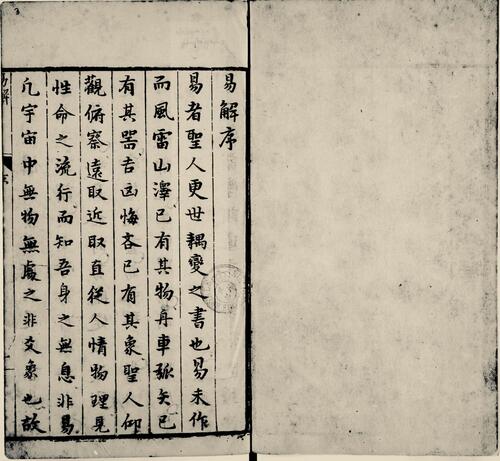 易解序
易者聖人更世耦變之書也易未作
而風雷山澤已有其物舟車弧矢已
有其器吉凶悔吝已有其象聖人仰
觀俯察遠取近取直從人情物理見
性命之流行而知吾身之無息非易
凡宇宙中無物無處之非爻象也故